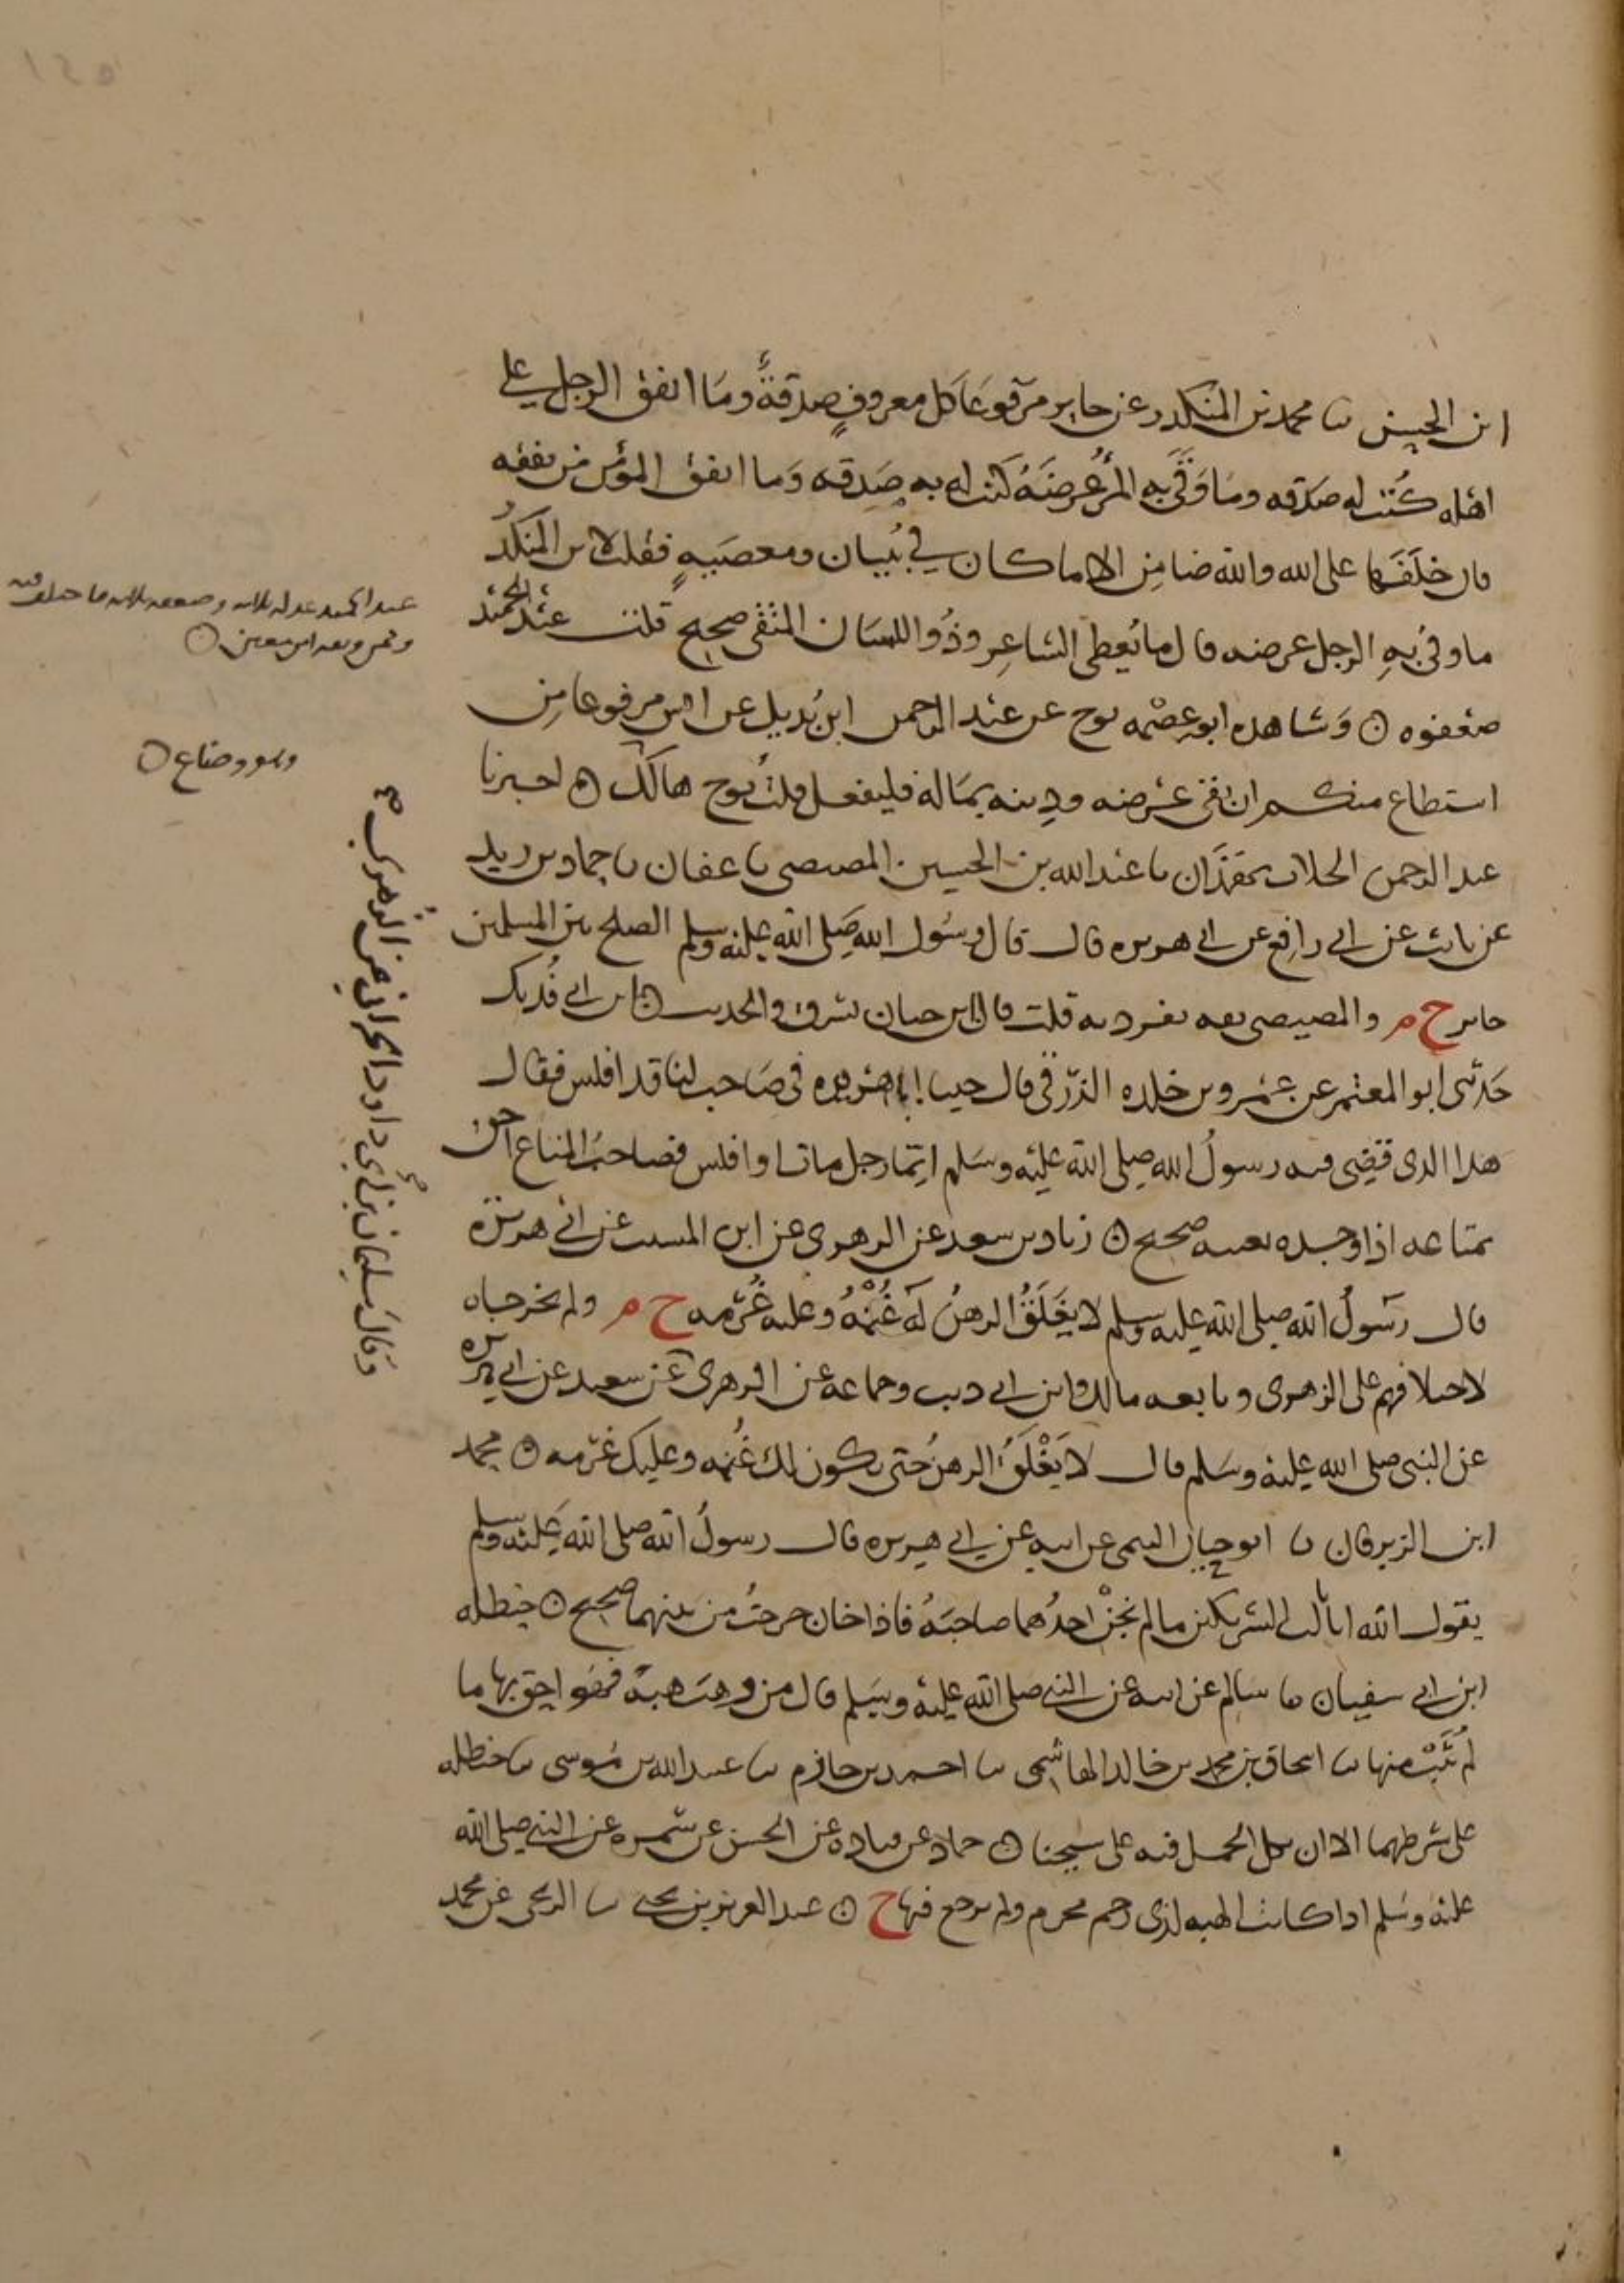 ابن الحسن ثنا محمد بن المنكدر عن جابر مرفوعا كل معروف صدقة وما انفق الرجل على
اهله كتب له صدقه وما وقى به المرء عرضه كتب له به صدقه وما انفق المؤمن من نفقه
فان خلفها على الله والله ضامن الا ما كان في بنيان ومعصيه فقلت لابن المنكدر
ما وقى به الرجل عرضه قال ما يعطى الشاعر وذو اللسان المتقى صحيح قلت عبد الحميد
ضعفوه ۞ وشاهده ابو عصمه نوح عن عبد الرحمن ابن بديل عن انس مرفوعا من
استطاع منكم ان يقى عرضه ودينه بماله فليفعل قلت نوح هالك ۞ اخبرنا
عبد الرحمن الحلاب بهمذان ثنا عبد الله بن الحسين المصيصى ثنا عفان ثنا حماد بن زيد
عن ثابت عن ابى رافع عن ابى هريره قال قال رسول الله صلى الله عليه وسلم الصلح بين المسلمين
جايز خ م والمصيصى ثقه تفرد به قلت قال ابن حبان يسرق الحديث ۞ ابن ابى فديك
حدثنى ابو المعتمر عن عمرو بن خلده الزرقى قال جينا ابا هريره فى صاحب لنا قد افلس فقال
هذا الذى قضى فيه رسول الله صلى الله عليه وسلم ايما رجل مات او افلس فصاحب المتاع احق
بمتاعه اذا وجده بعينه صحيح ۞ زياد بن سعد عن الزهرى عن ابن المسيب عن ابى هريره
قال رسول الله صلى الله عليه وسلم لا يغلق الرهن له غنمه وعليه غرمه خ م ولم يخرجاه
لاختلافهم على الزهرى وتابعه مالك وابن ابى ذيب وجماعه عن الزهرى عن سعيد عن ابى هريره
عن النبى صلى الله عليه وسلم قال لا يغلق الرهن حتى يكون لك غنمه وعليك غرمه ۞ محمد
ابن الزبرقان ثنا ابو حيان التيمى عن ابيه عن ابى هريره قال رسول الله صلى الله عليه وسلم
يقول الله انا ثالث الشريكين ما لم يخن احدهما صاحبه فاذا خان خرجت من بينهما صحيح ۞ حنظله
ابن ابى سفيان ثنا سالم عن ابيه عن النبى صلى الله عليه وسلم قال من وهب هبة فهو احق بها ما
لم يثب منها ثنا اسحاق بن محمد بن خالد الهاشمى ثنا احمد بن حازم ثنا عبيد الله بن موسى ثنا حنظله
على شرطهما الا ان يكون الحمل فيه على شيخنا ۞ حماد عن قتاده عن الحسن عن سمره عن النبى صلى الله
عليه وسلم اذا كانت الهبه لذى رحم محرم لم يرجع فيها خ ۞ عبد العزيز بن يحيى ثنا الزنجى عن محمد
وقال سليمان بن ابى داود الحرانى عن الزهرى